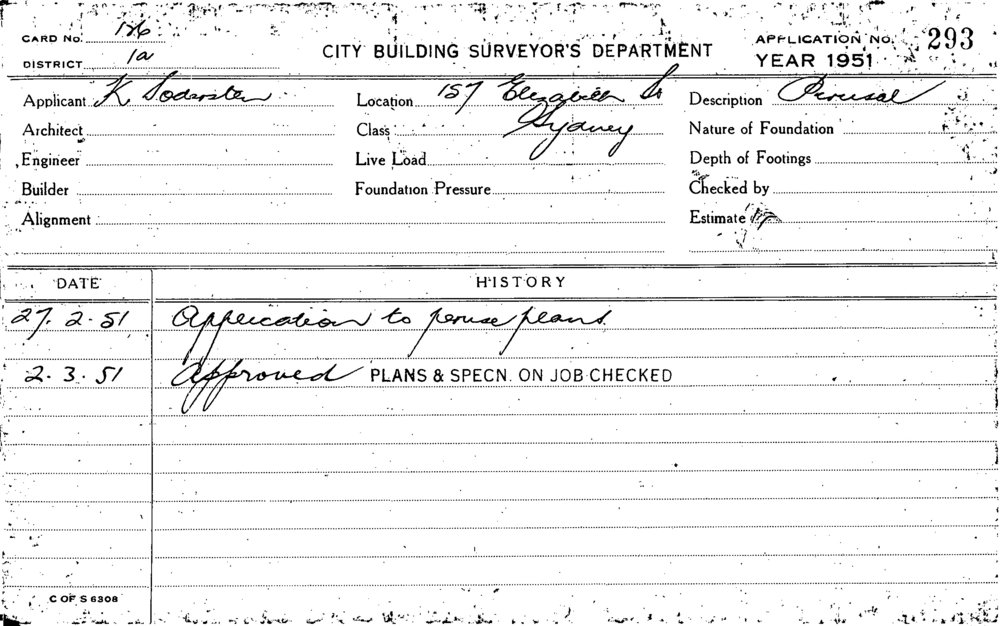 CARD No. 186
DISTRICT 1a
CITY BUILDING SURVEYOR'S DEPARTMENT
APPLICATION No. 293
YEAR 1951
Applicant K Sodersten
Location 157 Elizabeth St
Description Perusal
Architect
Class Sydney
Nature of Foundation
Engineer
Live Load
Depth of Footings
Builder
Foundation Pressure
Checked by
Alignment
Estimate
DATE HISTORY
27.2.51 Application to peruse plans
2.3.51 Approved PLANS & SPECN. ON JOB CHECKED
C OF S 6308